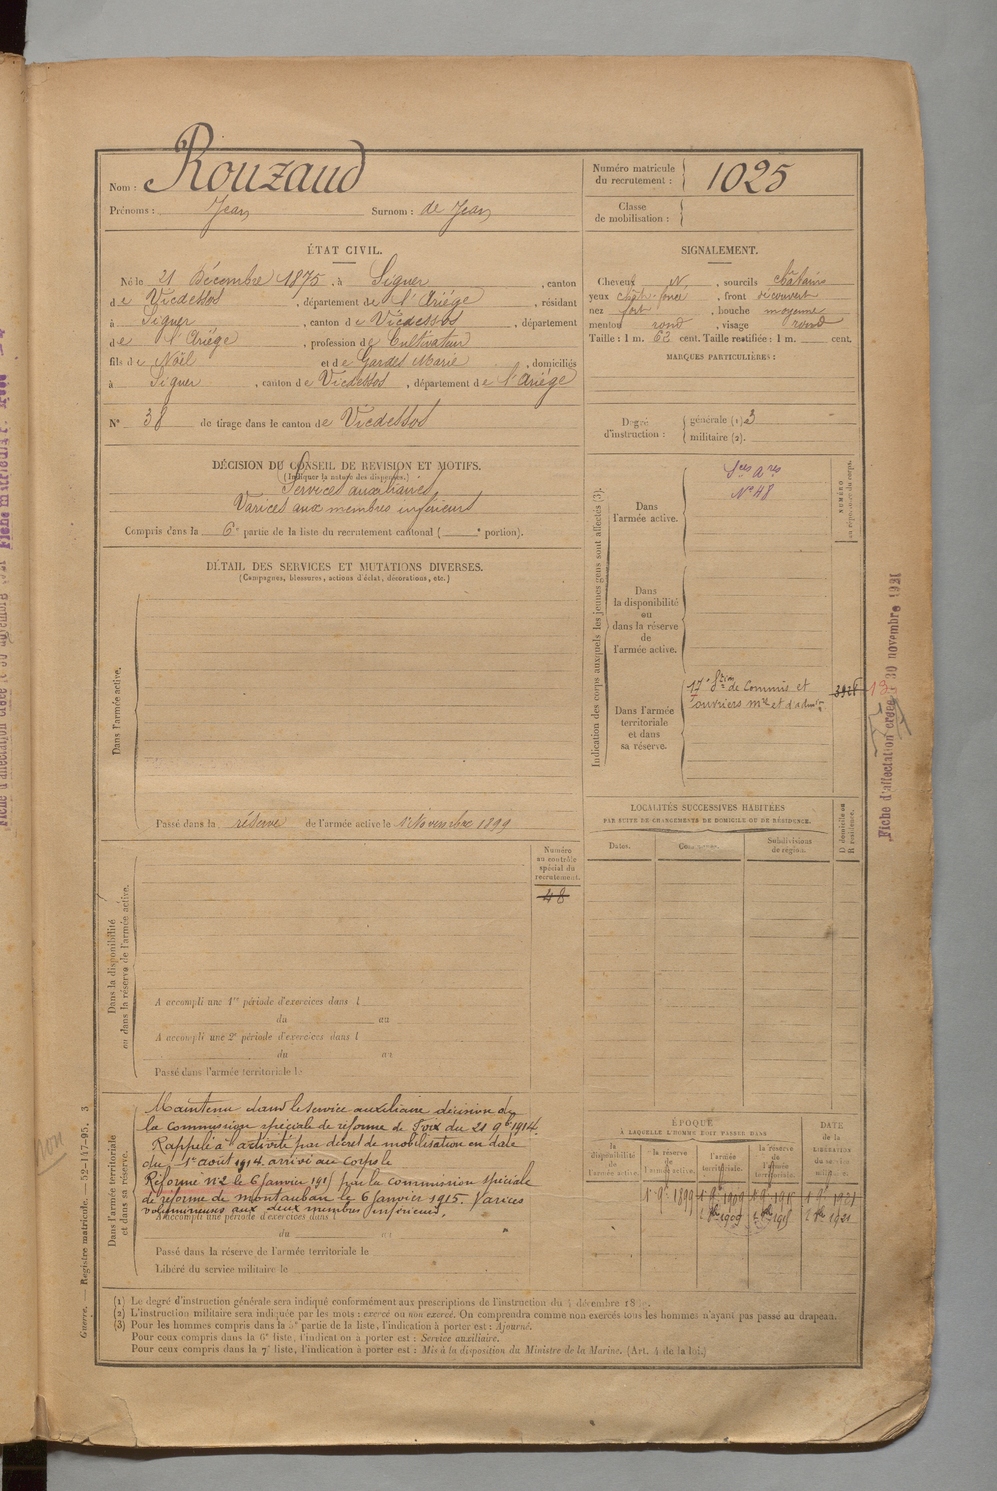 Nom : Rouzaud
Prénoms : Jean Surnom : de Jean
Numéro matricule du recrutement : 1025
Classe de mobilisation :
ÉTAT CIVIL.
Né le 21 Décembre 1875, à Siguer, canton
de Vicdessos, département de l'Ariège, résidant
à Siguer, canton de Vicdessos, département
de l'Ariège, profession de Cultivateur
fils de Noël et de Gardes Marie, domiciliés
à Siguer, canton de Vicdessos, département de l'Ariège
N° 38 de tirage dans le canton de Vicdessos
SIGNALEMENT.
Cheveux N, sourcils châtains
yeux chât. foncé, front découvert
nez fort, bouche moyenne
menton rond, visage rond
Taille : 1 m. 62 cent. Taille rectifiée : 1 m. cent.
MARQUES PARTICULIÈRES :
Degré d'instruction : générale (1) 3
militaire (2).
DÉCISION DU CONSEIL DE REVISION ET MOTIFS.
(Indiquer la nature des dispenses.)
Services auxiliaires
Varices aux membres inférieurs
Compris dans la 6e partie de la liste du recrutement cantonal ( e portion).
DÉTAIL DES SERVICES ET MUTATIONS DIVERSES.
(Campagnes, blessures, actions d'éclat, décorations, etc.)
Dans l'armée active.
Passé dans la réserve de l'armée active le 1 Novembre 1899
Indication des corps auxquels les jeunes gens sont affectés (3).
NUMÉRO
au répertoire du corps.
Dans l'armée active.
Sces ares
N° 48
Dans la disponibilité ou dans la réserve de l'armée active.
Dans l'armée territoriale et dans sa réserve.
17e Son de Commis et
ouvriers mres et d'admon
LOCALITÉS SUCCESSIVES HABITÉES
PAR SUITE DE CHANGEMENTS DE DOMICILE OU DE RÉSIDENCE.
Dates. Communes. Subdivisions de région.
D domicile ou R résidence.
Numéro au contrôle spécial du recrutement.
48
Dans la disponibilité ou dans la réserve de l'armée active.
A accompli une 1re période d'exercices dans l
du au
A accompli une 2e période d'exercices dans l
du au
Passé dans l'armée territoriale le
Dans l'armée territoriale et dans sa réserve.
Maintenu dans le service auxiliaire décision de
la commission spéciale de réforme de Foix du 21 9bre 1914.
Rappelé à l'activité par décret de mobilisation en date
du 1er août 1914. arrivé au corps le
Réformé n°2 le 6 Janvier 1915 par la commission spéciale
de réforme de Montauban le 6 Janvier 1915. Varices
volumineuses aux deux membres inférieurs.
A accompli une période d'exercices dans l
du au
Passé dans la réserve de l'armée territoriale le
Libéré du service militaire le
ÉPOQUE
À LAQUELLE L'HOMME DOIT PASSER DANS
la disponibilité de l'armée active. la réserve de l'armée active. l'armée territoriale. la réserve de l'armée territoriale.
DATE de la LIBÉRATION du service militaire.
1 9bre 1899 1 9bre 1909 1 9bre 1915 1 9bre 1921
1 8bre 1909 1 8bre 1915 1 8bre 1921
(1) Le degré d'instruction générale sera indiqué conformément aux prescriptions de l'instruction du 4 décembre 18
(2) L'instruction militaire sera indiquée par les mots : exercé ou non exercé. On comprendra comme non exercés tous les hommes n'ayant pas passé au drapeau.
(3) Pour les hommes compris dans la 5e partie de la liste, l'indication à porter est : Ajourné.
Pour ceux compris dans la 6e liste, l'indication à porter est : Service auxiliaire.
Pour ceux compris dans la 7e liste, l'indication à porter est : Mis à la disposition du Ministre de la Marine. (Art. 4 de la loi.)
Guerre. — Registre matricule. — 52-147-95. 3
Fiche d'affectation créée le 30 novembre 1931
non